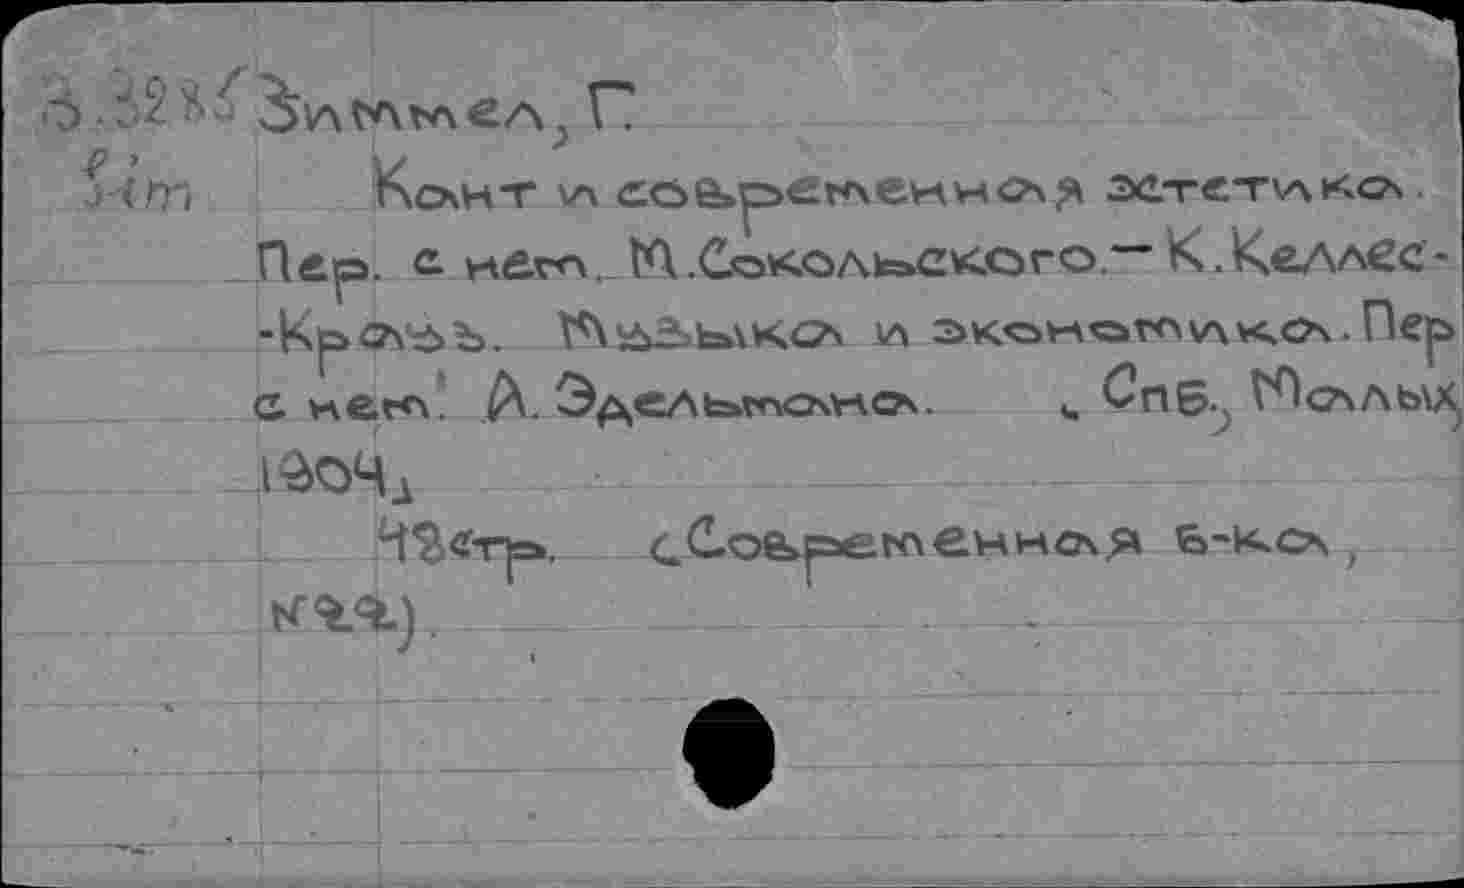 Зиммел, Г.
Кант и современная эстетика.
Пер. с нем. М.Сокольского.— К.Келлес-
-Крауз. Музыка и экономика. Пер
с нем. А. Эдельмана. СПБ., Малых,
1904
48стр. (Современная б-ка,